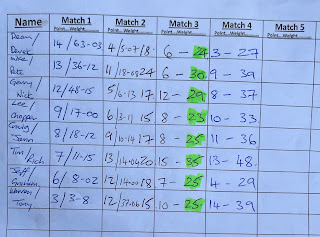 Name Match 1 Match 2 Match 3 Match 4 Match 5
Point Weight Point Weight Point Weight Point Weight Point Weight
Dean/
Derek 14/63-03 4/5-07/18 6 - 24 3 - 27
Mike/
Pete 13/36-12 11/18-08 24 6 - 30 9 - 39
Gerry/
Nick 12/48-15 5/6-13 17 12 - 29 8 - 37
Lee/
Chopper 9/17-00 6/3-11 15 8 - 23 10 - 33
8/18-12 9/10-14 17 8 - 25 11 - 36
Tim/
Rich. 7/11-15 13/14-04 20 15 - 35 13 - 48.
Jeff/
Graham. 6/8-02 12/14-00 18 7 - 25 4 - 29
Tony 3/3-8 12/37-06 15 10 - 25 14 - 39